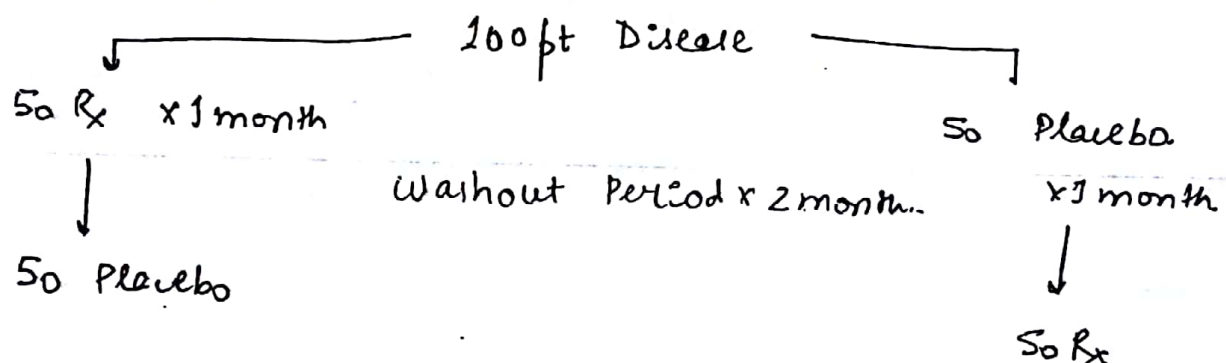 100 pt Disease
50 Rx x 1 month
50 Placebo
x 1 month
Washout Period x 2 month..
50 Placebo
50 Rx